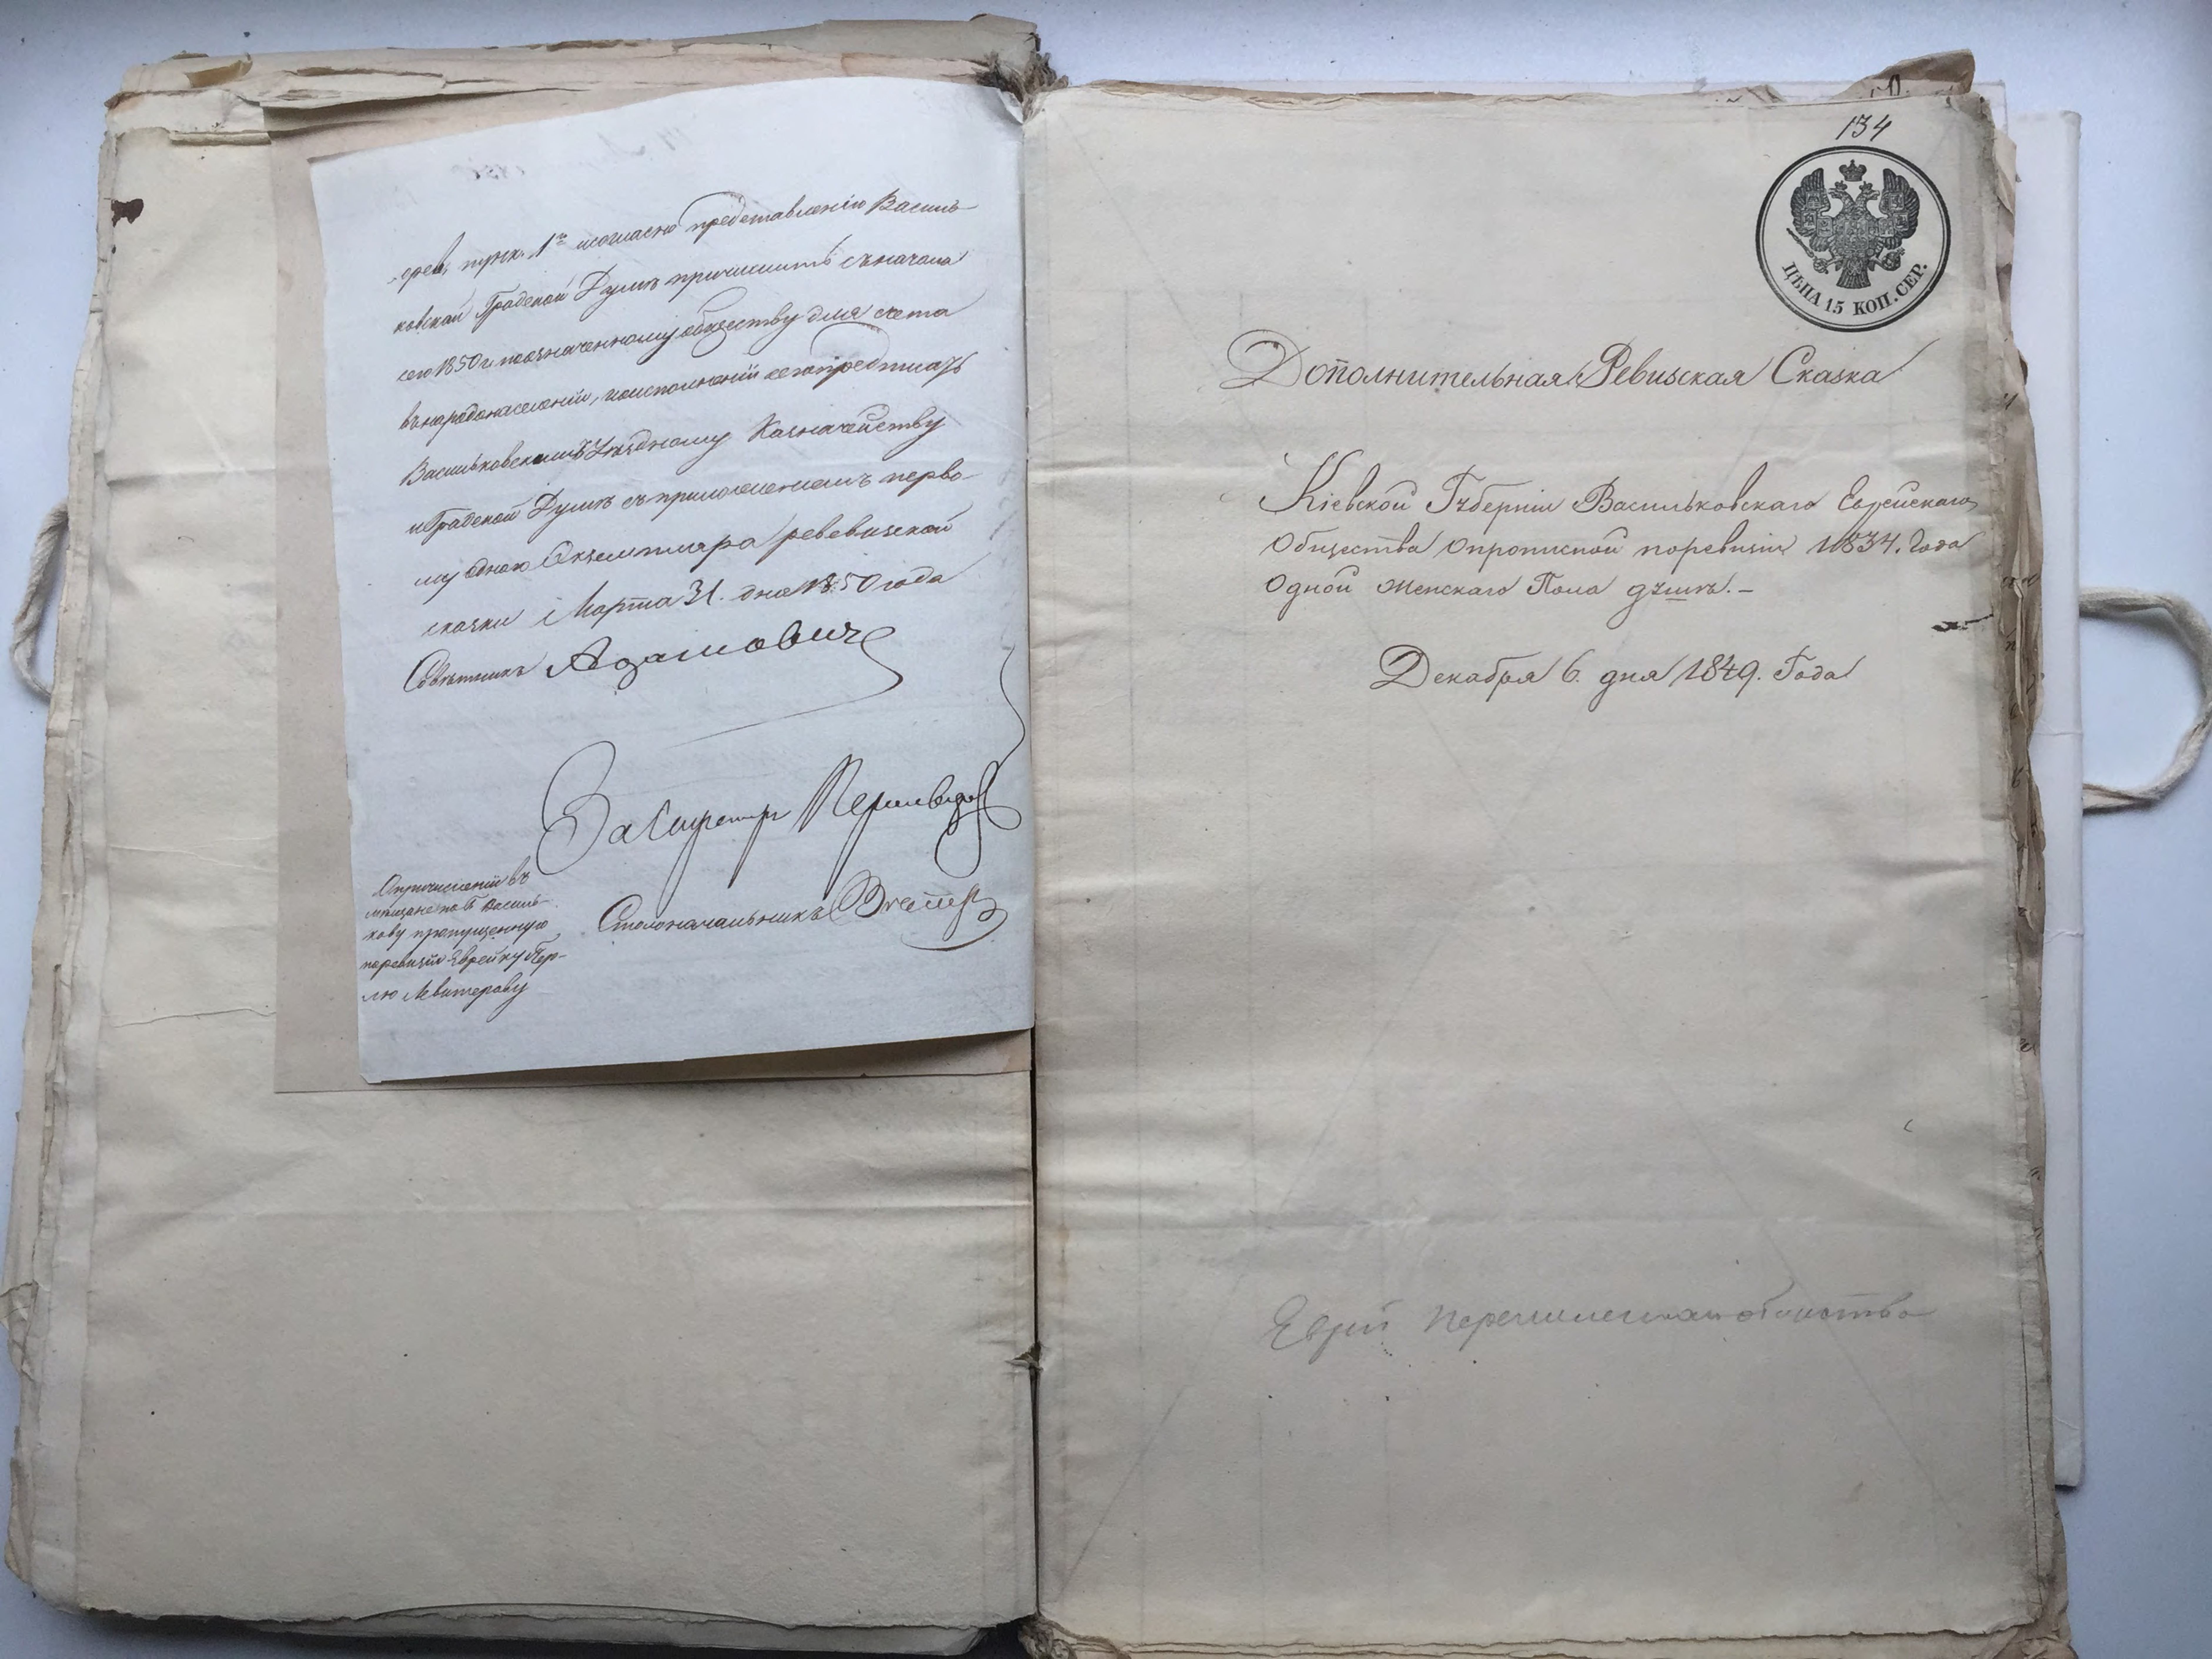 грев, пунк. 1й исогласно представленію Василь-
ковской Градской Думы причислить съначала
сего 1850 г. поозначенному обществу для счета
въ народонаселеніи, иоисполненіи сего предписать
Васильковскимъ Уѣздному Казначейству
и Градской Думѣ съ приложеніемъ перво-
му одного Экземпляра ревизской
сказки Марта 31. дня 1850 года
Совѣтникъ Адамович
За Секретаря
Столоначальникъ
Опричисленіи въ
мѣщане по г. Василь-
кову пропущенную
поревизіи Еврейку Пер-
лю Левитерову
134
ЦѢНА 15 КОП. СЕР.
Дополнительная Ревизская Сказка
Кіевской Губерніи Васильковскаго Еврейскаго
Общества Опрописной поревизіи 1834. Года
Одной Женскаго Пола душѣ. –
Декабря 6. дня 1849. Года
Еврей